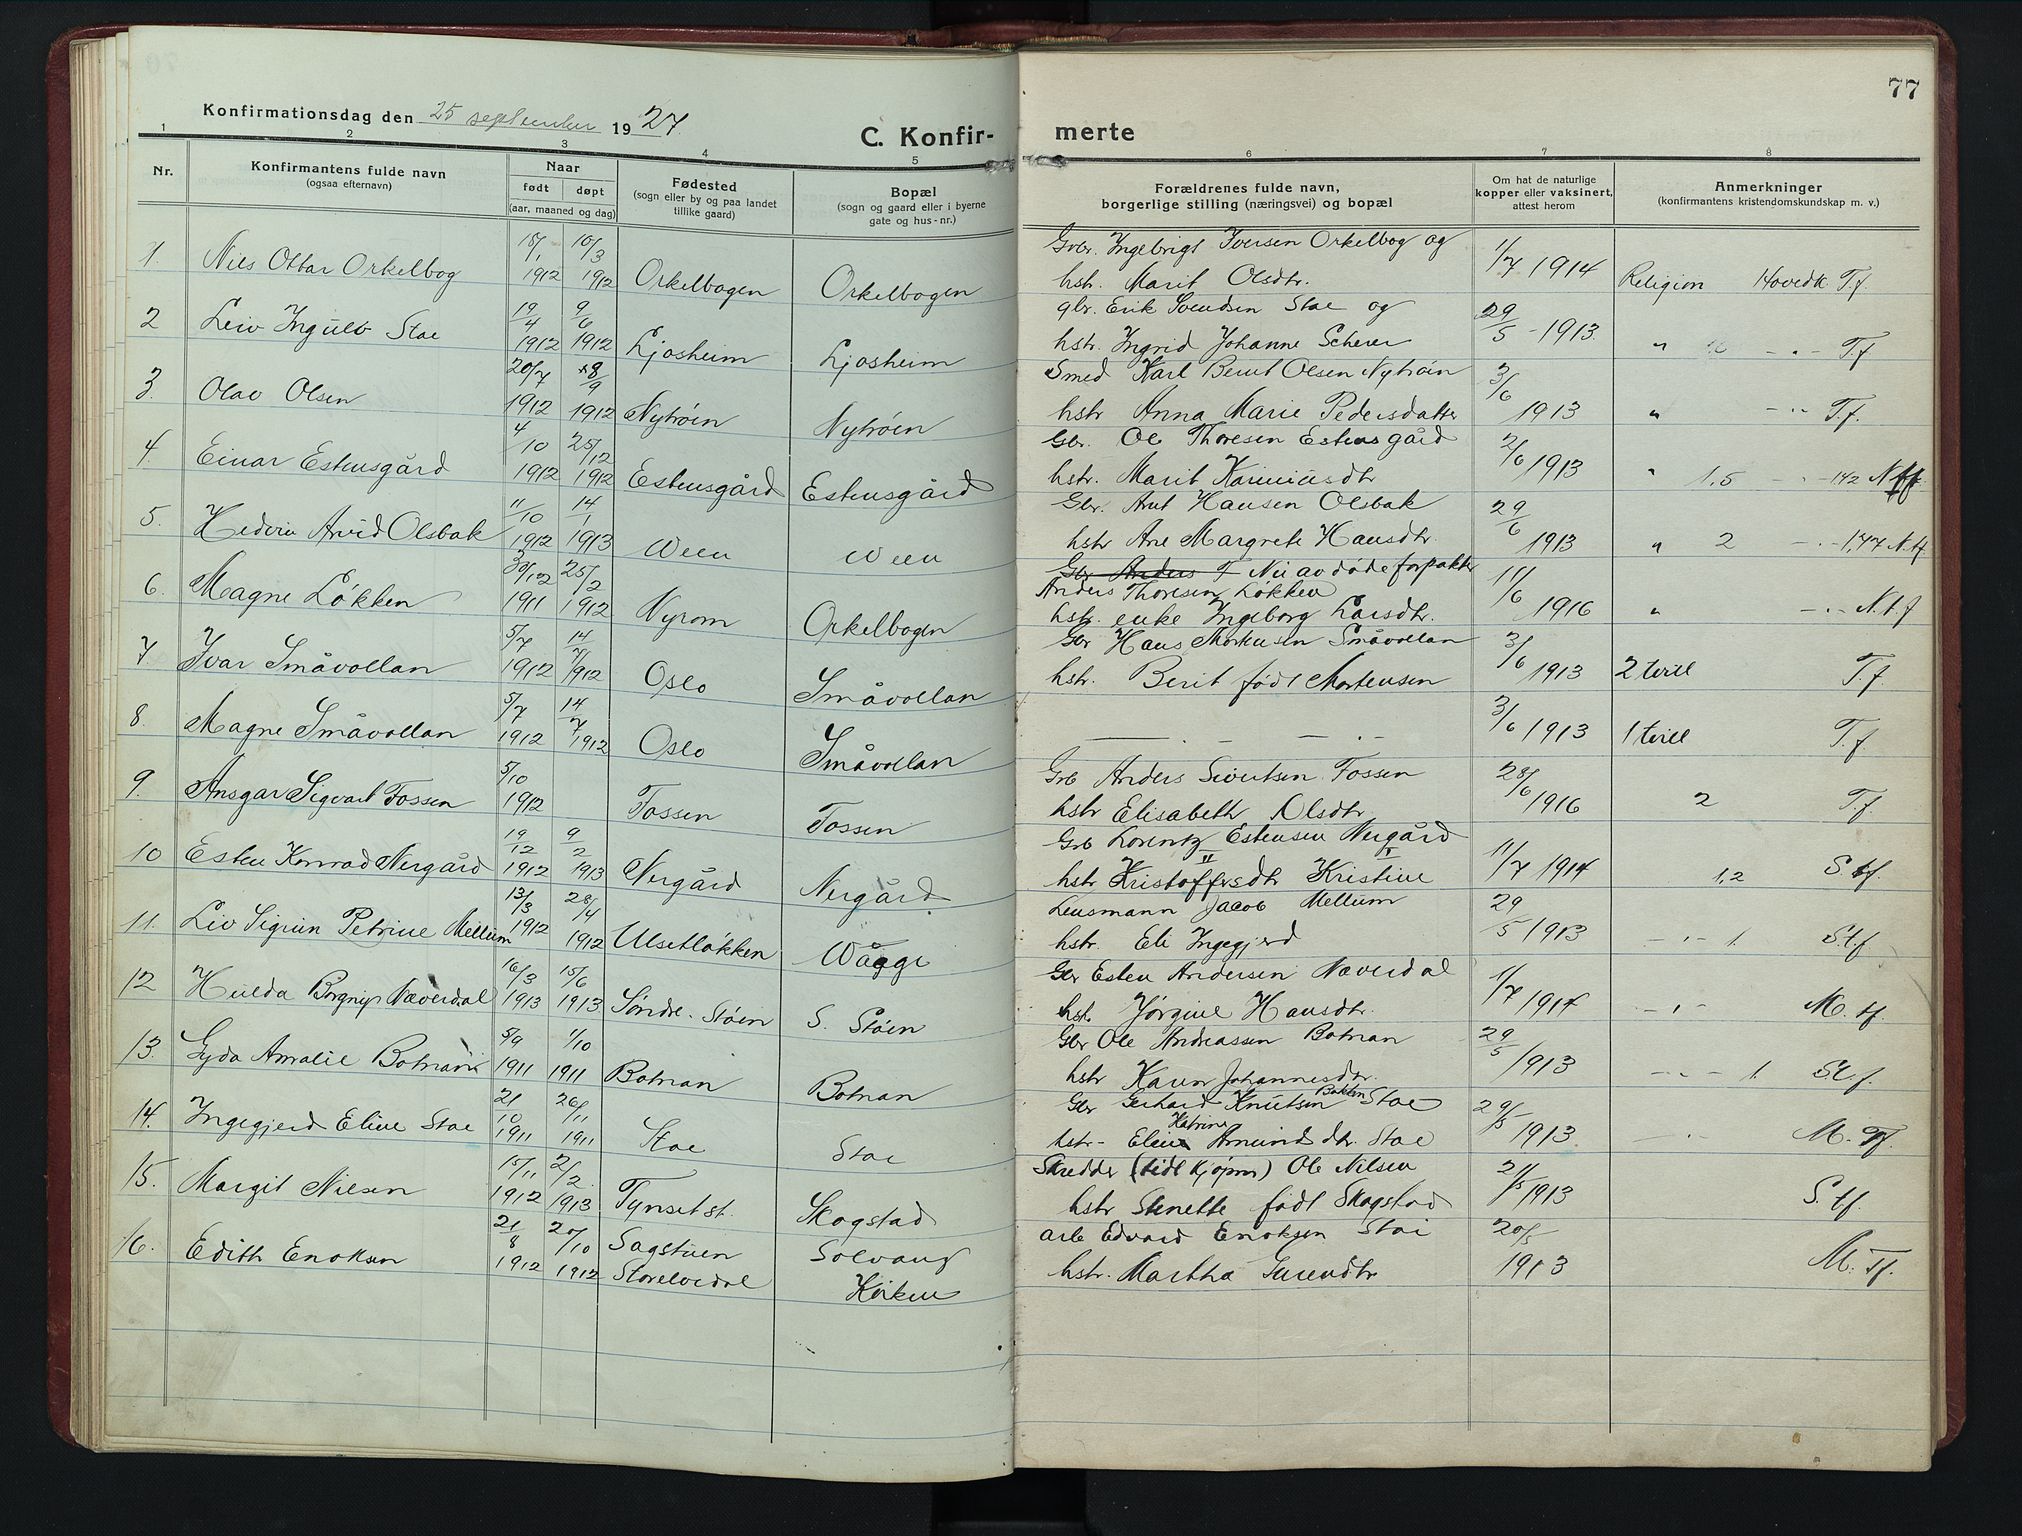 77
Konfirmationsdag den 25 september 1927.
C. Konfir-
merte
1 2 3 4 5 6 7 8
Nr.
Konfirmantens fulde navn
(ogsaa efternavn)
Naar
født døpt
(aar, maaned og dag)
Fødested
(sogn eller by og paa landet
tillike gaard)
Bopæl
(sogn og gaard eller i byerne
gate og hus-nr.)
Forældrenes fulde navn,
borgerlige stilling (næringsvei) og bopæl
Om hat de naturlige
kopper eller vaksinert,
attest herom
Anmerkninger
(konfirmantens kristendomskundskap m. v.)
1. Nils Ottar Orkelbog 18/1 1912 10/3 1912 Orkelbogen Orkelbogen
Gbr. Ingebrigt Iversen Orkelbog og
hstr. Marit Olsdtr. 1/7 1914 Religion Hovedk. T.f.
2 Leiv Ingulv Stae 19/4 1912 9/6 1912 Ljosheim Ljosheim
gbr. Erik Svendsen Stae og
hstr. Ingrid Johanne Scherer 29/5 - 1913 " T.f
3. Olav Olsen 20/7 1912 8/9 1912 Nytrøen Nytrøen
Smed Karl Bernt Olsen Nytrøen
hstr Anna Marie Pedersdatter 3/6 1913 " T.f.
4. Einar Estensgård 4/10 1912 25/12 1912 Estensgård Estensgård
Gbr. Ole Thoresen Estensgård
hstr. Marit 2/6 1913 " 1,5
5. Arvid Olsbak 11/10 1912 14/1 1913 Ween Ween
Gbr. Arnt Hansen Olsbak
hstr Ane Margrete Hansdtr. 29/6 1913 " 2 N.tf
6. Magne Løkken 30/12 1911 25/2 1912 Nyrom Orkelbogen
Gbr Anders T Nu avdøde forpakter
Anders Thoresen Løkken
hstr. enke Ingeborg Larsdtr. 11/6 1916 " N.t.f
7 Ivar Småvollan 5/7 1912 14/7 1912 Oslo Småvollan
Gbr Hans Mortensen Småvollan
hstr. Berit født Mortensen 3/6 1913 2 tvill T.f.
8. Magne Småvollan 5/7 1912 14/7 1912 Oslo Småvollan
— . — — . — 3/6 1913 1 tvill T.f.
9. Ansgar Sigvart Tossen 5/10 1912 Tossen Tossen
Grb Anders Sivertsen Tossen
hstr Elisabeth Olsdtr. 28/6 1916 2 T.f.
10 Esten Konrad Nergård 19/12 1912 9/2 1913 Nergård Nergård
Grb Lorentz Estensen Nergård
hstr Kristoffersdtr Kristine 11/7 1914 1,2 S.tf.
11. Liv Sigrun Petrine Mellum 13/3 1912 28/4 1912 Ulsetløkken Wågge
Lensmann Jacob Mellum
hstr. Eli Ingegjerd 29/5 1913 — " — 1. S.t.f
12 Hulda Borgny Næverdal 16/3 1913 15/6 1913 Søndre-Støen S. Støen
Gbr Esten Andersen Næverdal
hst. Jørgine Hansdtr. 1/7 1914 — " — M. tf.
13. Gyda Amalie Botnan 5/9 1911 1/10 1911 Botnan Botnan
Gbr Ole Andreassen Botnan
hstr Karen Johannesdtr. 29/5 1913 — " — 1. St.f.
14. Ingegjerd Eline Stae 21/10 1911 26/11 1911 Stae Stae
Gbr Gerhard Knutsen Bakken Stae
Katrine
hstr- Eline Amundsdtr. Stae 29/5 1913. — " — M. Tf.
15. Margit Nilsen 15/11 1912 2/2 1913 Tynset st. Skogstad
Skredder (tidl kjøpm) Ole Nilsen
hstr Stenette født Skogstad 21/5 1913 S. tf.
16. Edith Enoksen 21/8 1912 20/10 1912 Sagstuen
Storelvedal Solvang
Kirken
arb Edvard Enoksen Stai
hstr. Martha 20/5 1913 M. Tf.